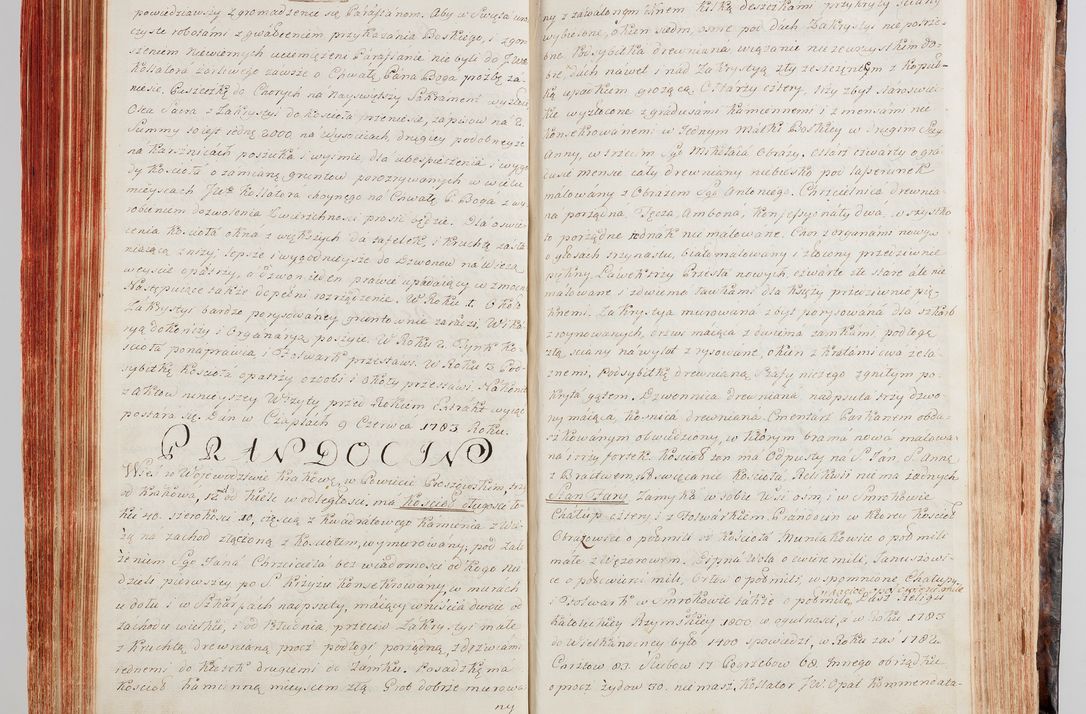 powiedziawszy zgromadzenie się Parafianom. Aby w Święta uro
czyste robotami z gwałceniem przykazania Boskiego, i zgor
szeniem niewiernych uciemiężeni Parafianie nie byli do JWo
Kollatora żarliwego zawsze o Chwałę Pana Boga prozbę za
niesie. Puszeczkę do Chorych na Nayswiętszy Sakrament
Olea Sacra z Zakrystyi do Kościoła przeniesie, zapisow na 2.
Summy to iest iedną 2000 na Wysocicach, drugiey podobneyże
na Karsznicach poszuka i wyimie dla ubespieczenia i wygo
dy Kościoła o zamianę gruntow porozrywanych w wielu
mieyscach JWo Kollatora choynego na Chwałę P. Boga z wy
robieniem dozwolenia Zwierzchności prosić będzie. Dla oswie
cenia Kościoła okna z większych da tafelek, i kruchtą zasła
niaiącą z niży lepsze i wygodnieysze do Dzwonow na Wieżą
weyście opatrzy, a Dzwon ieden prawie upadaiący wzmocni
Następuiące także dopełni rozrządzenie. W Roku 1. Okna
Zakrystyi bardzo porysowaney gruntownie zaradzi, Wika
ryą dokończy i Organaryą poszyie. W Roku 2. Tynk Ko
ścioła ponaprawia i Folwark przestawi. W Roku 3. Pod
sybitkę Kościoła opatrzy ozdobi i Obory przestawi. Nakoniec
z Aktow ninieyszey Wizyty przed Rokiem Extrakt wyiąć
postara się. Dan w Czaplach 9 Czerwca 1783 Roku.
PRANDOCIN
Wieś w Woiewodztwie Krakowskim, w Powiecie Proszowskim,
od Krakowa, od Kielc w odległości, ma Kościoł długości ło-
kci 40. szerokości 20, cięską z kwadratowego kamienia z Wie
żą na zachod złączoną z Kościołem, wymurowany, pod zało
żeniem Sgo Jana Chrzciciela bez wiadomości od kogo Nie
dzieli pierwszey po S. Krzyżu konsekrowany, w murach
u dołu i w Szkarpach napsuty, maiący wniścia dwoie od
zachodu wielkie, i od Południa przeciw Zakrystyi małe
z kruchtą drewnianą procz podłogi porządną z drzwiami
iednemi do kłozek drugiemi do zamku. Posadzkę ma
Kościoł kamienną mieyscem złą. Grob dobrze murowa
ny
ny z zawalonym kinem kilką deszczkami przykryty ściany
wybielone, okien siedm, osme pod dach Zakrystyi nie potrze
bne. Podsybitka drewniana, wiązanie nie ze wszystkim do-
bre, dach nawet i nad Zakrystyą zły ze szczętem z kopuł-
ką upadkiem grożącą. Ołtarzy cztery, trzy zbyt staroswie
ckie wyzłacane z gradusami kamiennemi i z mensami nie
konsekrowanemi w Jednym Matki Boskiey w drugim Stey
Anny, w trzecim Sgo Mikołaia Obrazy. Ołtarz czwarty o gra
dusie mensie cały drewniany niebiesko pod lapserunek
malowany z Obrazem Sgo Antoniego. Chrzcielnica drewnia-
na porządna, Tęcza, Ambona, Konfessyonały dwa, wszystko
to porządne iednak nie malowane. Chor z organami nowy
o głosach trzynastu, biało malowany i złocony przedziwnie
piękny. Ławek trzy krzesła nowych, czwarte złe stare ale nie
malowane i z dwiema ławkami dla księży przedziwnie pię-
knemi. Zakrystya murowana zbyt porysowana dla szkarp
zruynowanych, drzwi maiąca z dwiema zamkami podłogę
złą, ściany na wylot zrysowane, okien z kratami dwa żela
znemi, Podsybitkę drewnianą Szafy niczego zgniłym po
krytą gątem. Dzwonnica drewniana nadpsuta trzy dzwo
ny maiąca, kośnica drewniana. Cmentarz Parkanem obda
szkowanym obwiedziony, w którym brama nowa malowa-
na i trzy fortek. Kościoł ten ma Odpusty na S. Jan, S. Annę
z Bractwem, Poswięcanie Kościoła, Relikwii nie ma żadnych
Stan Fary Zamyka w sobie Wsi osm, i w Smrokowie
Chałup cztery, i z Folwarkiem. Prandocin w ktorey Kościoł
Obrazowice o pod mili od Kościoła Muniakowice o pod mili
małe z Wężerowem. Pipna Wola o ćwierć mili, Januszowi-
ce o pod ćwierci mili, Orłow o pod mili, w spomnione Chałupy
i Folwark w Smrokowie także o pod mili, Dusz Religii
Katolickiey Rzymskiey 1800 w ogulności, a w Roku 1783
do Wielkanocney było 1400 spowiedzi, w Roku zaś 1782.
Chrztow 83. Slubow 17 Pogrzebow 68. Innego obrządku
oprocz żydow 30. nie masz. Kollator JW. Opat Kommendata-